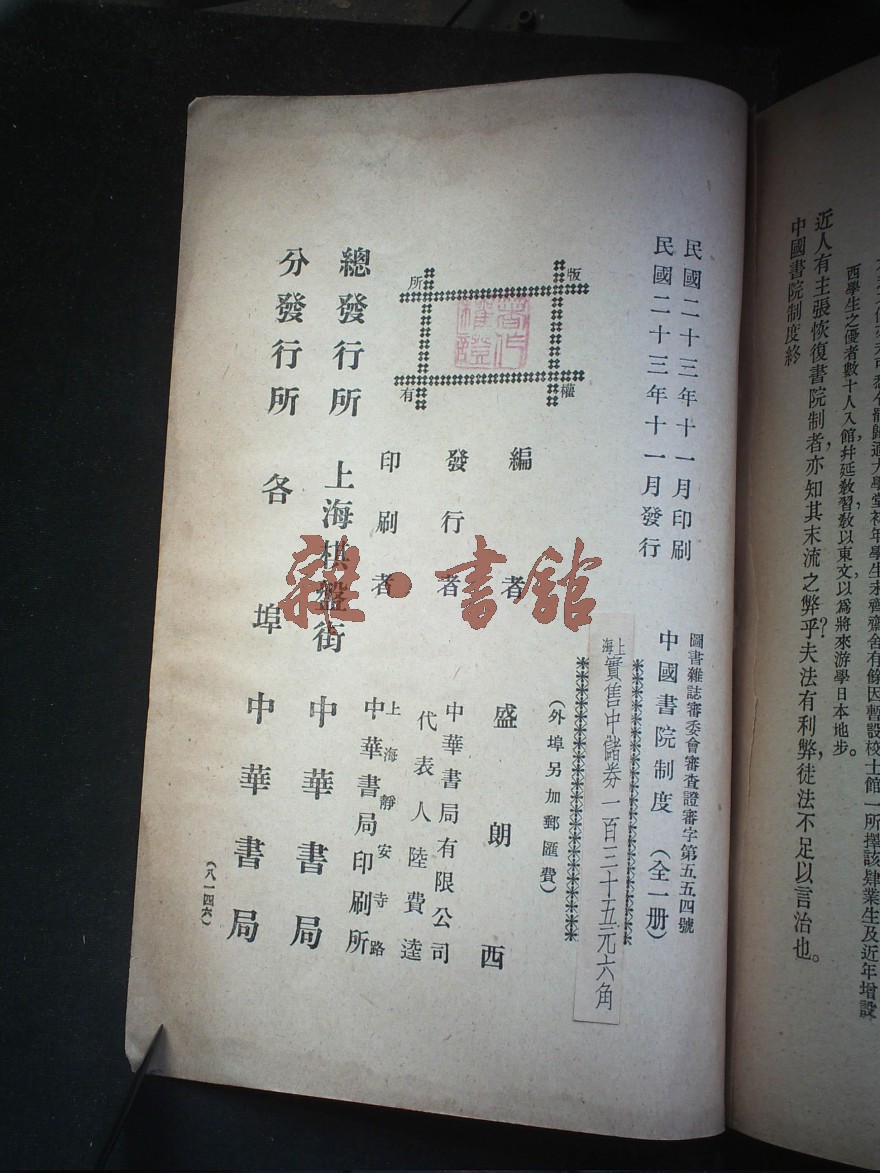 西學生之優者數十人入館幷延敎習敎以東文，以爲將來游學日本地步。
近人有主張恢復書院制者，亦知其末流之弊乎？夫法有利弊，徒法不足以言治也。
中國書院制度終
民國二十三年十一月印刷
民國二十三年十一月發行
圖書雜誌審委會審查證審字第五五四號
中國書院制度（全一册）
上海實售中儲券一百三十五元六角
（外埠另加郵匯費）
版權所有
著作權證
編者 盛朗西
發行者 中華書局有限公司
代表人陸費逵
印刷者 上海靜安寺路
中華書局印刷所
總發行所 上海棋盤街 中華書局
分發行所 各埠 中華書局
（八一四六）
雜·書館